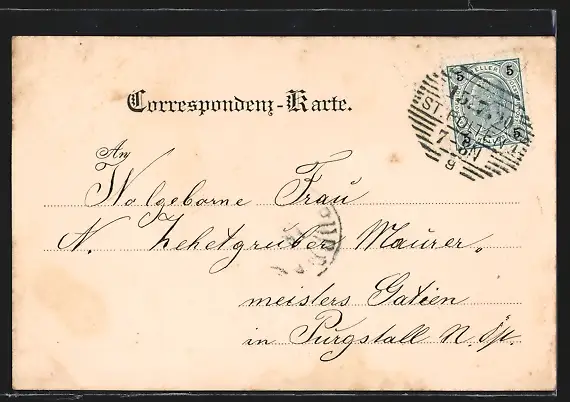 Correspondenz-Karte.
5 HELLER 5
5 5
ST. PÖLTEN 1
7-8N
9
An
Wolgeborne Frau
N. Zehetgruber Maurer„
meisters Gatien
in Purgstall N. Öst.